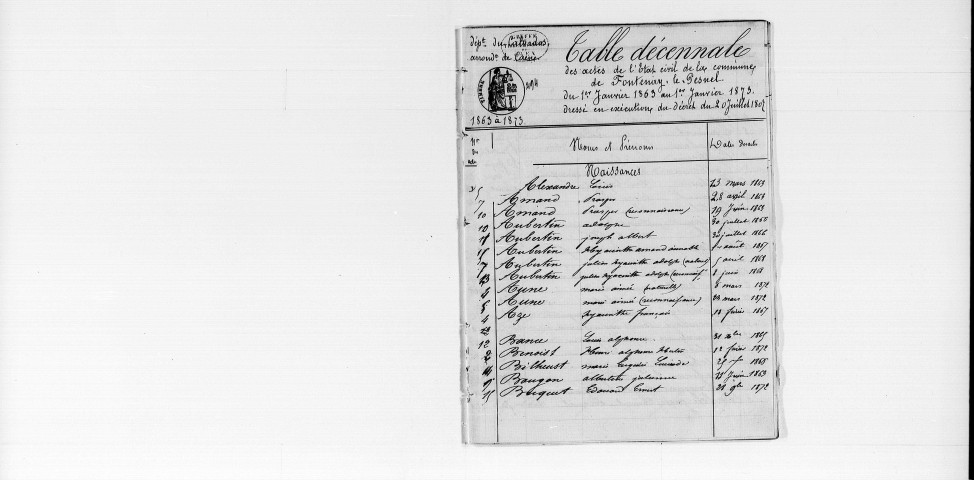 dépt. du Calvados
arrondt. de Caen
1863 à 1873
Table décennale
des actes de l'Etat civil de la commune
de Fontenay-le-Pesnel
du 1er Janvier 1863 au 1er Janvier 1873.
dressé en exécution du décret du 20 Juillet 1807
Nos des actes
Noms et Prénoms
Dates des actes
Naissances
5 Alexandre Louis 23 mars 1863
7 Amand 28 avril 1863
10 Amand (reconnaissance) 19 Juin 1863
10 Aubertin adolphe 30 juillet
11 Aubertin joseph albert juillet 1866
15 Aubertin Hyacinthe amand aimable août 1867
7 Aubertin julien hyacinthe adolphe 5 avril 1868
13 Aubertin julien hyacinthe adolphe 1868
4 Aune marie aimée (naturelle) 8 mars 1872
5 Aune marie aimée (reconnaissance) mars 1872
4 Aze hyacinthe françois 18 février 1867
Bance Louis alphonse 31 xbre
2 Benoist Henri alphonse 12 février 1872
Bilheust marie 1868
Baugon albertine julienne 25 Juin 1863
15 Buquet Edouard Ernest 28 9bre 1872